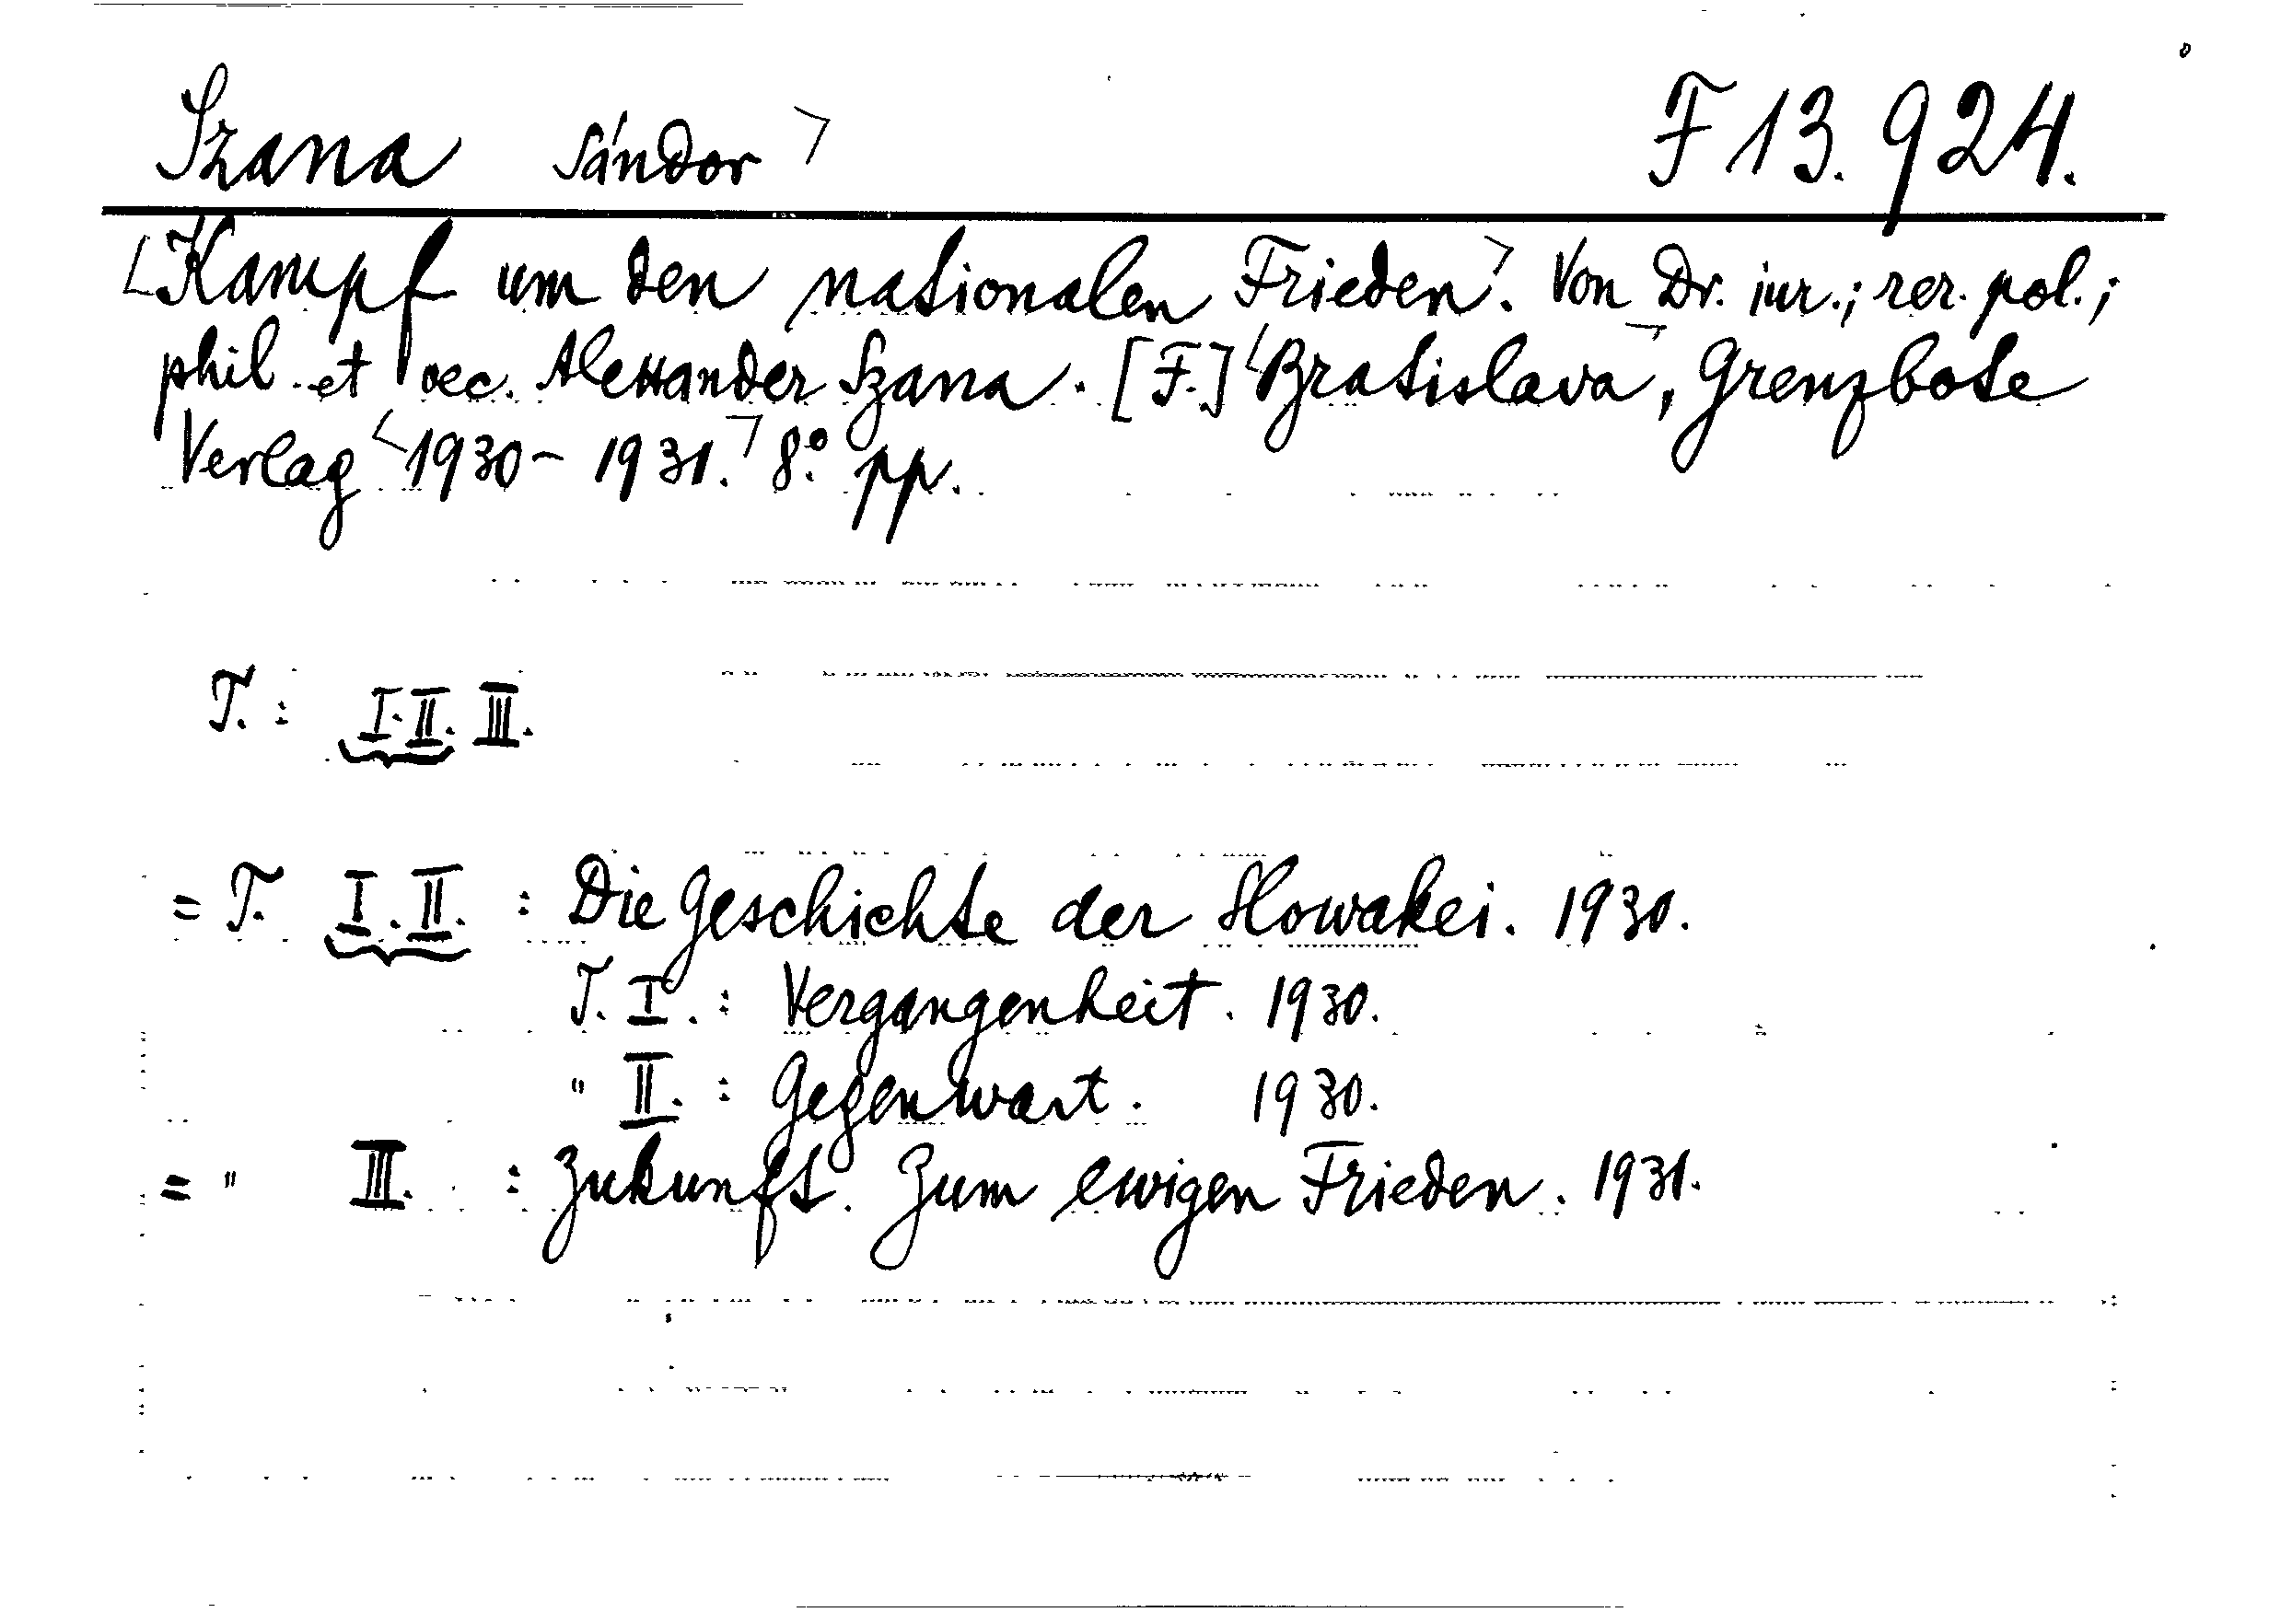 Szana Sándor F 13.924.
Kampf um den nationalen Frieden. Von Dr. iur.; rer. pol.;
phil. et oec. Alexander Szana. [F.] Bratislava, Grenzbote
Verlag 1930-1931. 8° pp.
T. : I. II. III.
= T. I. II. : Die Geschichte der Slowakei. 1930.
T. I. : Vergangenheit. 1930.
" II. : Gegenwart. 1930.
= " III. : Zukunft. Zum ewigen Frieden. 1931.